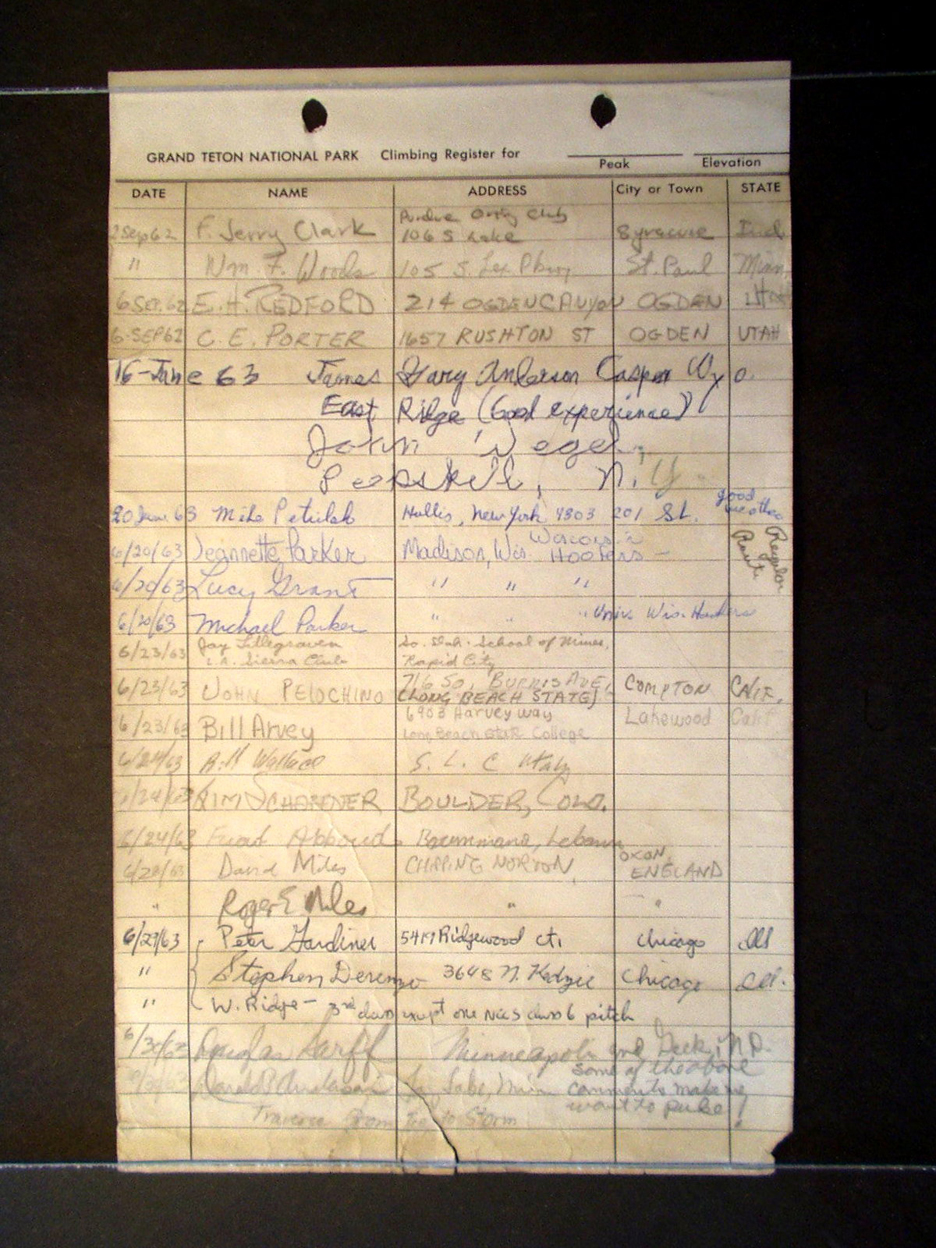 GRAND TETON NATIONAL PARK Climbing Register for
Peak Elevation
DATE NAME ADDRESS City or Town STATE
Purdue Outing Club
2 Sep 62 F. Jerry Clark 106 S Lake Syracuse Ind
" Wm F. Woods 105 S. Lex Pkwy St. Paul Minn
6 SEP. 62 E. H. REDFORD 214 OGDEN CANYON OGDEN UTAH
6-SEP 62 C. E. PORTER 1657 RUSHTON ST OGDEN UTAH
16-June 63 James Gary Anderson Casper Wyo.
East Ridge (Good experience)
John
Peekskill, N.Y.
20 June 63 Mike Hollis, New York 4803 201 St. good weather
6/20/63 Jeannette Parker Madison, Wis. Wisconsin Hoofers - Regular Route
6/20/63 Lucy Grant " " "
6/20/63 Michael Parker " " " Univ. Wis. Hoofers
6/23/63 Jay So. Dak. School of Mines,
L.A. Sierra Club Rapid City
6/23/63 JOHN PELOCHINO 716 SO. BURRIS AVE, COMPTON CALIF.
(LONG BEACH STATE)
6/23/63 Bill Arvey 6903 Harvey way Lakewood Calif
Long Beach State College
6/24/63 Bill Wallace S. L. C Utah
6/24/63 BOULDER, COLO.
6/24/63 Fuad Abboud Brummana, Lebanon
6/28/63 David Miles CHIPPING NORTON, OXON, ENGLAND
" Roger E Miles " "
6/27/63 Peter Gardiner Ridgewood ct. Chicago Ill
" Stephen Derenzo 3648 N. Kedzie Chicago Ill.
" W. Ridge - 3rd class except one class 6 pitch
6/30/63 Douglas Minneapolis and N.D.
6/30/63 Anderson Minn some of the above
comments make me
Traverse from to Storm want to puke!